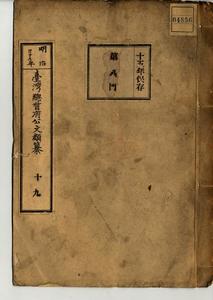 04856
十五年保存
第八門
明治
三十六年
臺灣總督府公文類纂
十九